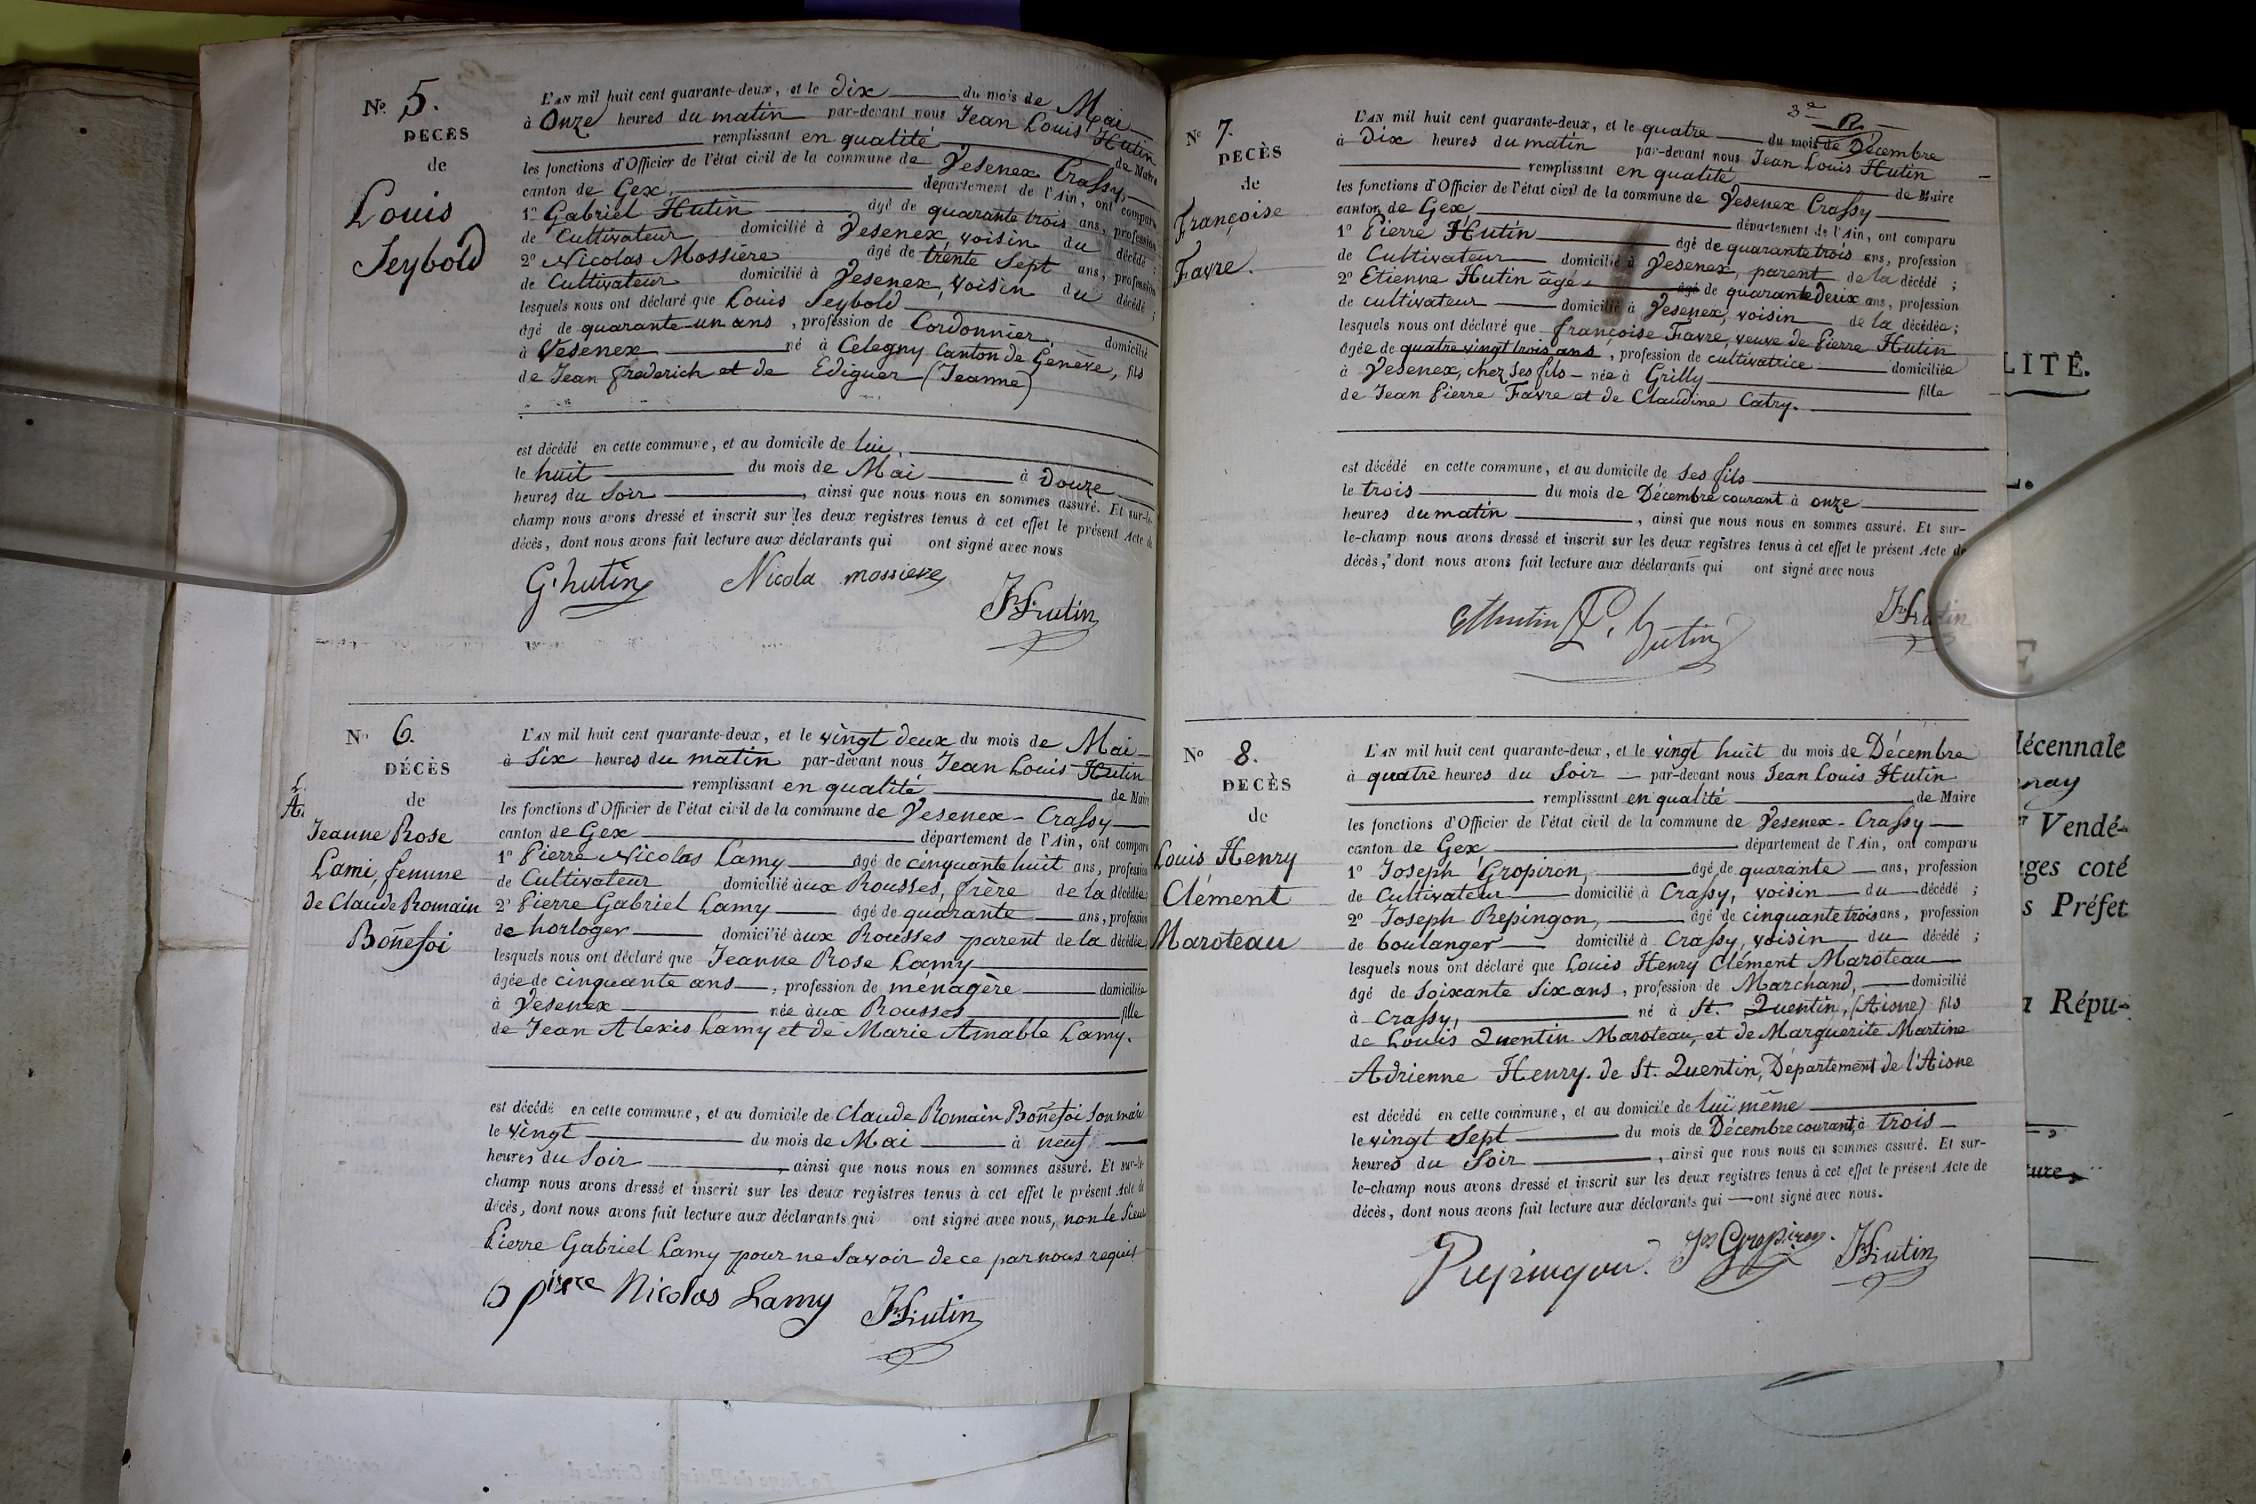 No. 5.
DÉCÈS
de
Louis
Seybold
L'AN mil huit cent quarante-deux, et le dix du mois de Mai
à Onze heures du matin par-devant nous Jean Louis Hutin
remplissant en qualité de Maire
les fonctions d'Officier de l'état civil de la commune de Vesenex Crassy
canton de Gex, département de l'Ain, ont comparu
1º Gabriel Hutin âgé de quarante trois ans, profession
de Cultivateur domicilié à Vesenex, voisin du décédé ;
2º Nicolas Mossière âgé de trente Sept ans, profession
de Cultivateur domicilié à Vesenex, voisin du décédé ;
lesquels nous ont déclaré que Louis Seybold
âgé de quarante-un ans, profession de Cordonnier, domicilié
à Vesenex né à Celegny Canton de Geneve, fils
de Jean frederich et de Ediguer (Jeanne)
est décédé en cette commune, et au domicile de lui,
le huit du mois de Mai à Douze
heures du Soir, ainsi que nous nous en sommes assuré. Et sur-le-
champ nous avons dressé et inscrit sur les deux registres tenus à cet effet le présent Acte de
décès, dont nous avons fait lecture aux déclarants qui ont signé avec nous
G. hutin Nicola mossiere JLHutin
No 6.
DÉCÈS
de
Jeanne Rose
Lami, femme
de Claude Romain
Boñefoi
L'AN mil huit cent quarante-deux, et le vingt deux du mois de Mai
à Six heures du matin par-devant nous Jean Louis Hutin
remplissant en qualité de Maire
les fonctions d'Officier de l'état civil de la commune de Vesenex-Crassy
canton de Gex département de l'Ain, ont comparu
1º Pierre Nicolas Lamy âgé de cinquante huit ans, profession
de Cultivateur domicilié aux Rousses, frère de la décédée
2º Pierre Gabriel Lamy âgé de quarante ans, profession
de horloger domicilié aux Rousses parent de la décédée
lesquels nous ont déclaré que Jeanne Rose Lamy
âgée de cinquante ans, profession de menagère domiciliée
à Vesenex née aux Rousses fille
de Jean Alexis Lamy et de Marie Amable Lamy.
est décédé en cette commune, et au domicile de Claude Romain Boñefoi Son mari
le vingt du mois de Mai à neuf
heures du Soir, ainsi que nous nous en sommes assuré. Et sur-le-
champ nous avons dressé et inscrit sur les deux registres tenus à cet effet le présent Acte de
décès, dont nous avons fait lecture aux déclarants qui ont signé avec nous, non le Sieur
Pierre Gabriel Lamy pour ne Savoir de ce par nous requis
pierre Nicolas Lamy JLHutin
3e
No 7.
DECÈS
de
Françoise
Favre.
L'AN mil huit cent quarante-deux, et le quatre du mois de Décembre
à Dix heures du matin par-devant nous Jean Louis Hutin
remplissant en qualité de Maire
les fonctions d'Officier de l'état civil de la commune de Vesenex Crassy
canton de Gex, département de l'Ain, ont comparu
1º Pierre Hutin âgé de quarante trois ans, profession
de Cultivateur domicilié à Vesenex, parent de la décédé ;
2º Etienne Hutin âgé âgé de quarante deux ans, profession
de cultivateur domicilié à Vesenex, voisin de la décédée ;
lesquels nous ont déclaré que françoise Favre, veuve de Pierre Hutin
âgée de quatre vingt trois ans, profession de cultivatrice domiciliée
à Vesenex, chez Ses fils née à Grilly fille
de Jean Pierre Favre et de Claudine Catry.
est décédé en cette commune, et au domicile de Ses fils
le trois du mois de Décembre courant à onze
heures du matin, ainsi que nous nous en sommes assuré. Et sur-
le-champ nous avons dressé et inscrit sur les deux registres tenus à cet effet le présent Acte de
décès, dont nous avons fait lecture aux déclarants qui ont signé avec nous
Ethutin P. hutin JLHutin
No 8.
DECÈS
de
Louis Henry
Clément
Maroteau
L'AN mil huit cent quarante-deux, et le vingt huit du mois de Décembre
à quatre heures du Soir par-devant nous Jean Louis Hutin
remplissant en qualité de Maire
les fonctions d'Officier de l'état civil de la commune de Vesenex-Crassy
canton de Gex, département de l'Ain, ont comparu
1º Joseph Gropiron, âgé de quarante ans, profession
de Cultivateur domicilié à Crassy, voisin du décédé ;
2º Joseph Repingon, âgé de cinquante trois ans, profession
de boulanger domicilié à Crassy, voisin du décédé ;
lesquels nous ont déclaré que Louis Henry Clément Maroteau
âgé de Soixante Six ans, profession de Marchand, domicilié
à Crassy, né à St. Quentin, (Aisne) fils
de Louis Quentin Maroteau, et de Marguerite Martine
Adrienne Henry. de St. Quentin, Département de l'Aisne
est décédé en cette commune, et au domicile de lui même
le vingt Sept du mois de Décembre courant, à trois
heures du Soir, ainsi que nous nous en sommes assuré. Et sur-
le-champ nous avons dressé et inscrit sur les deux registres tenus à cet effet le présent Acte de
décès, dont nous avons fait lecture aux déclarants qui ont signé avec nous.
Repingon. Jh Gropiron. JLHutin
LITÉ.
décennale
Vendé-
ages coté
s Préfet
Répu-
ture,